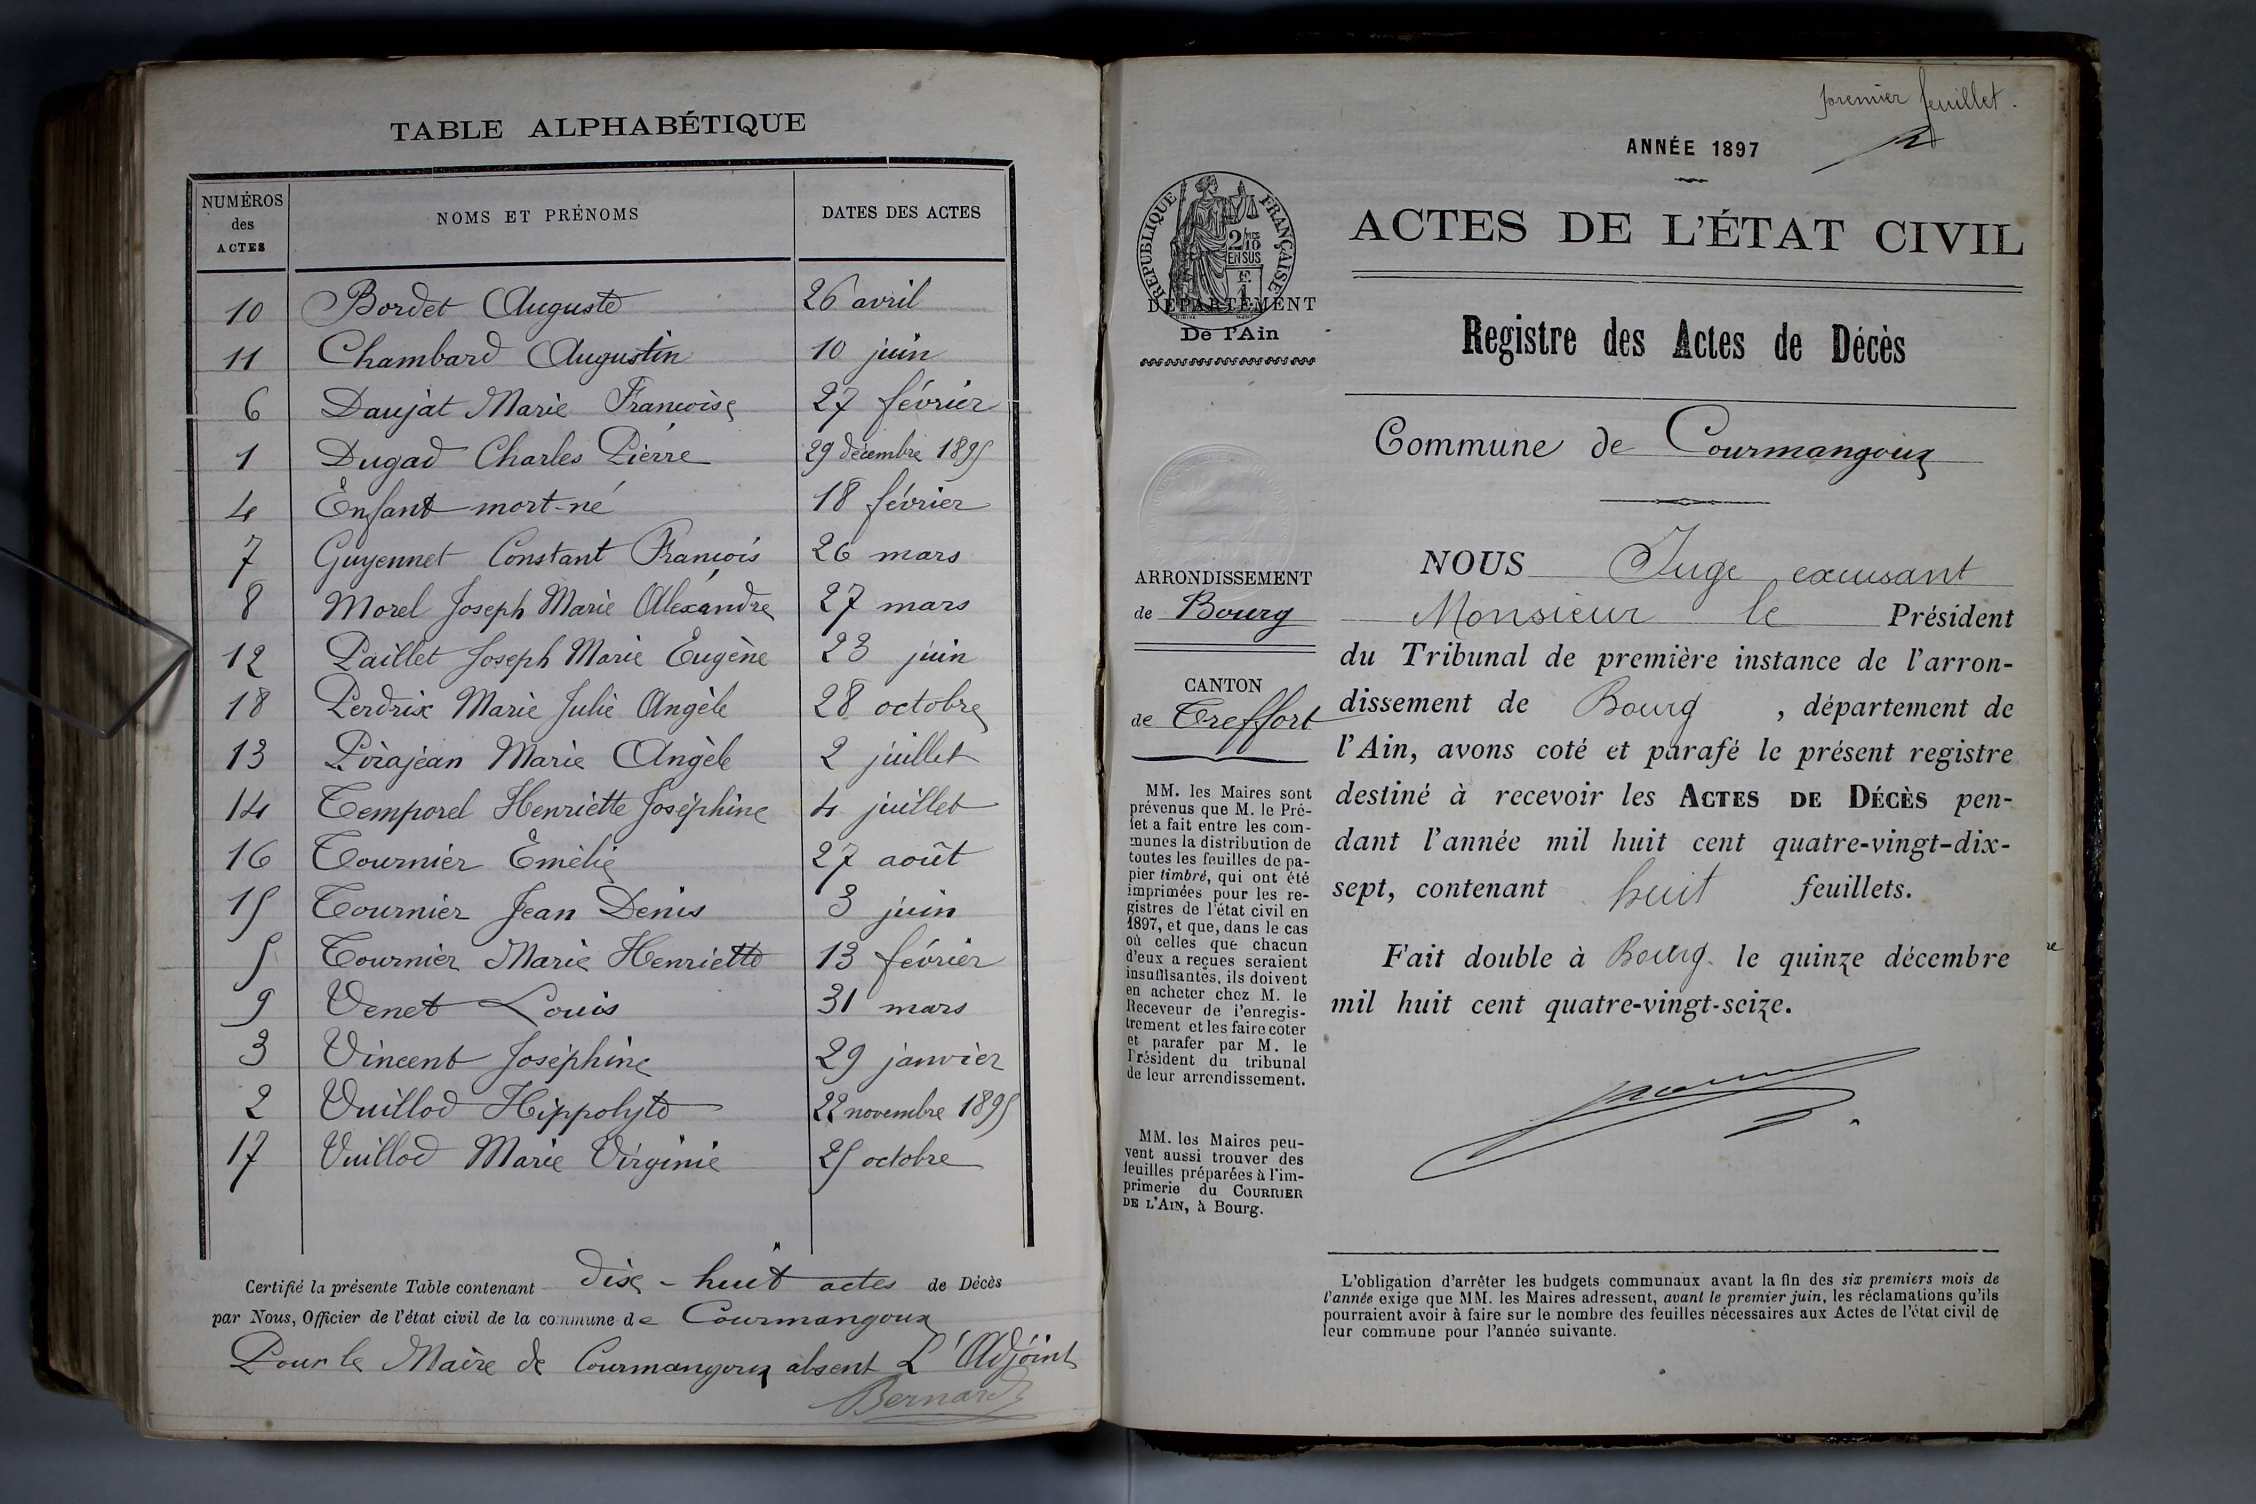 TABLE ALPHABÉTIQUE
NUMÉROS des ACTES
NOMS ET PRÉNOMS
DATES DES ACTES
10 Bordet Auguste 26 avril
11 Chambard Augustin 10 juin
6 Daujat Marie Françoise 27 février
1 Dugad Charles Pierre 29 décembre 1895
4 Enfant mort-né 18 février
7 Guyennet Constant François 26 mars
8 Morel Joseph Marie Alexandre 27 mars
12 Paillet Joseph Marie Eugène 23 juin
18 Perdrix Marie Julie Angèle 28 octobre
13 Pirajean Marie Angèle 2 juillet
14 Temporel Henriette Joséphine 4 juillet
16 Tournier Emélie 27 août
15 Tournier Jean Denis 3 juin
5 Tournier Marie Henriette 13 février
9 Venet Louis 31 mars
3 Vincent Joséphine 29 janvier
2 Vuillod Hippolyte 22 novembre 1895
17 Vuillod Marie Virginie 25 octobre
Certifié la présente Table contenant dix-huit actes de Décès
par Nous, Officier de l'état civil de la commune de Courmangoux
Pour le Maire de Courmangoux absent L'Adjoint
Bernard
premier feuillet.
ANNÉE 1897
RÉPUBLIQUE FRANÇAISE
2/10 EN SUS
DÉPARTEMENT
De l'Ain
ACTES DE L'ÉTAT CIVIL
Registre des Actes de Décès
Commune de Courmangoux
ARRONDISSEMENT
de Bourg
CANTON
de Treffort
MM. les Maires sont
prévenus que M. le Pré-
fet a fait entre les com-
munes la distribution de
toutes les feuilles de pa-
pier timbré, qui ont été
imprimées pour les re-
gistres de l'état civil en
1897, et que, dans le cas
où celles que chacun
d'eux a reçues seraient
insuffisantes, ils doivent
en acheter chez M. le
Receveur de l'enregis-
trement et les faire coter
et parafer par M. le
Président du tribunal
de leur arrondissement.
MM. les Maires peu-
vent aussi trouver des
feuilles préparées à l'im-
primerie du COURRIER
DE L'AIN, à Bourg.
NOUS Juge excusant
Monsieur le Président
du Tribunal de première instance de l'arron-
dissement de Bourg, département de
l'Ain, avons coté et parafé le présent registre
destiné à recevoir les ACTES DE DÉCÈS pen-
dant l'année mil huit cent quatre-vingt-dix-
sept, contenant huit feuillets.
Fait double à Bourg le quinze décembre
mil huit cent quatre-vingt-seize.
L'obligation d'arrêter les budgets communaux avant la fin des six premiers mois de
l'année exige que MM. les Maires adressent, avant le premier juin, les réclamations qu'ils
pourraient avoir à faire sur le nombre des feuilles nécessaires aux Actes de l'état civil de
leur commune pour l'année suivante.